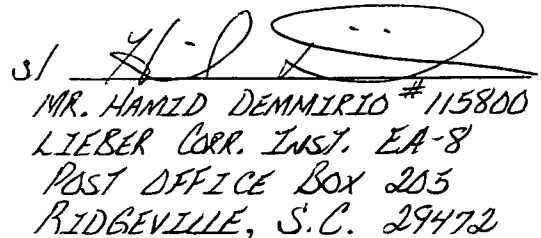 s/
MR. HAMID DEMMIRIO #115800
LIEBER CORR. INST. EA-8
POST OFFICE BOX 205
RIDGEVILLE, S.C. 29472